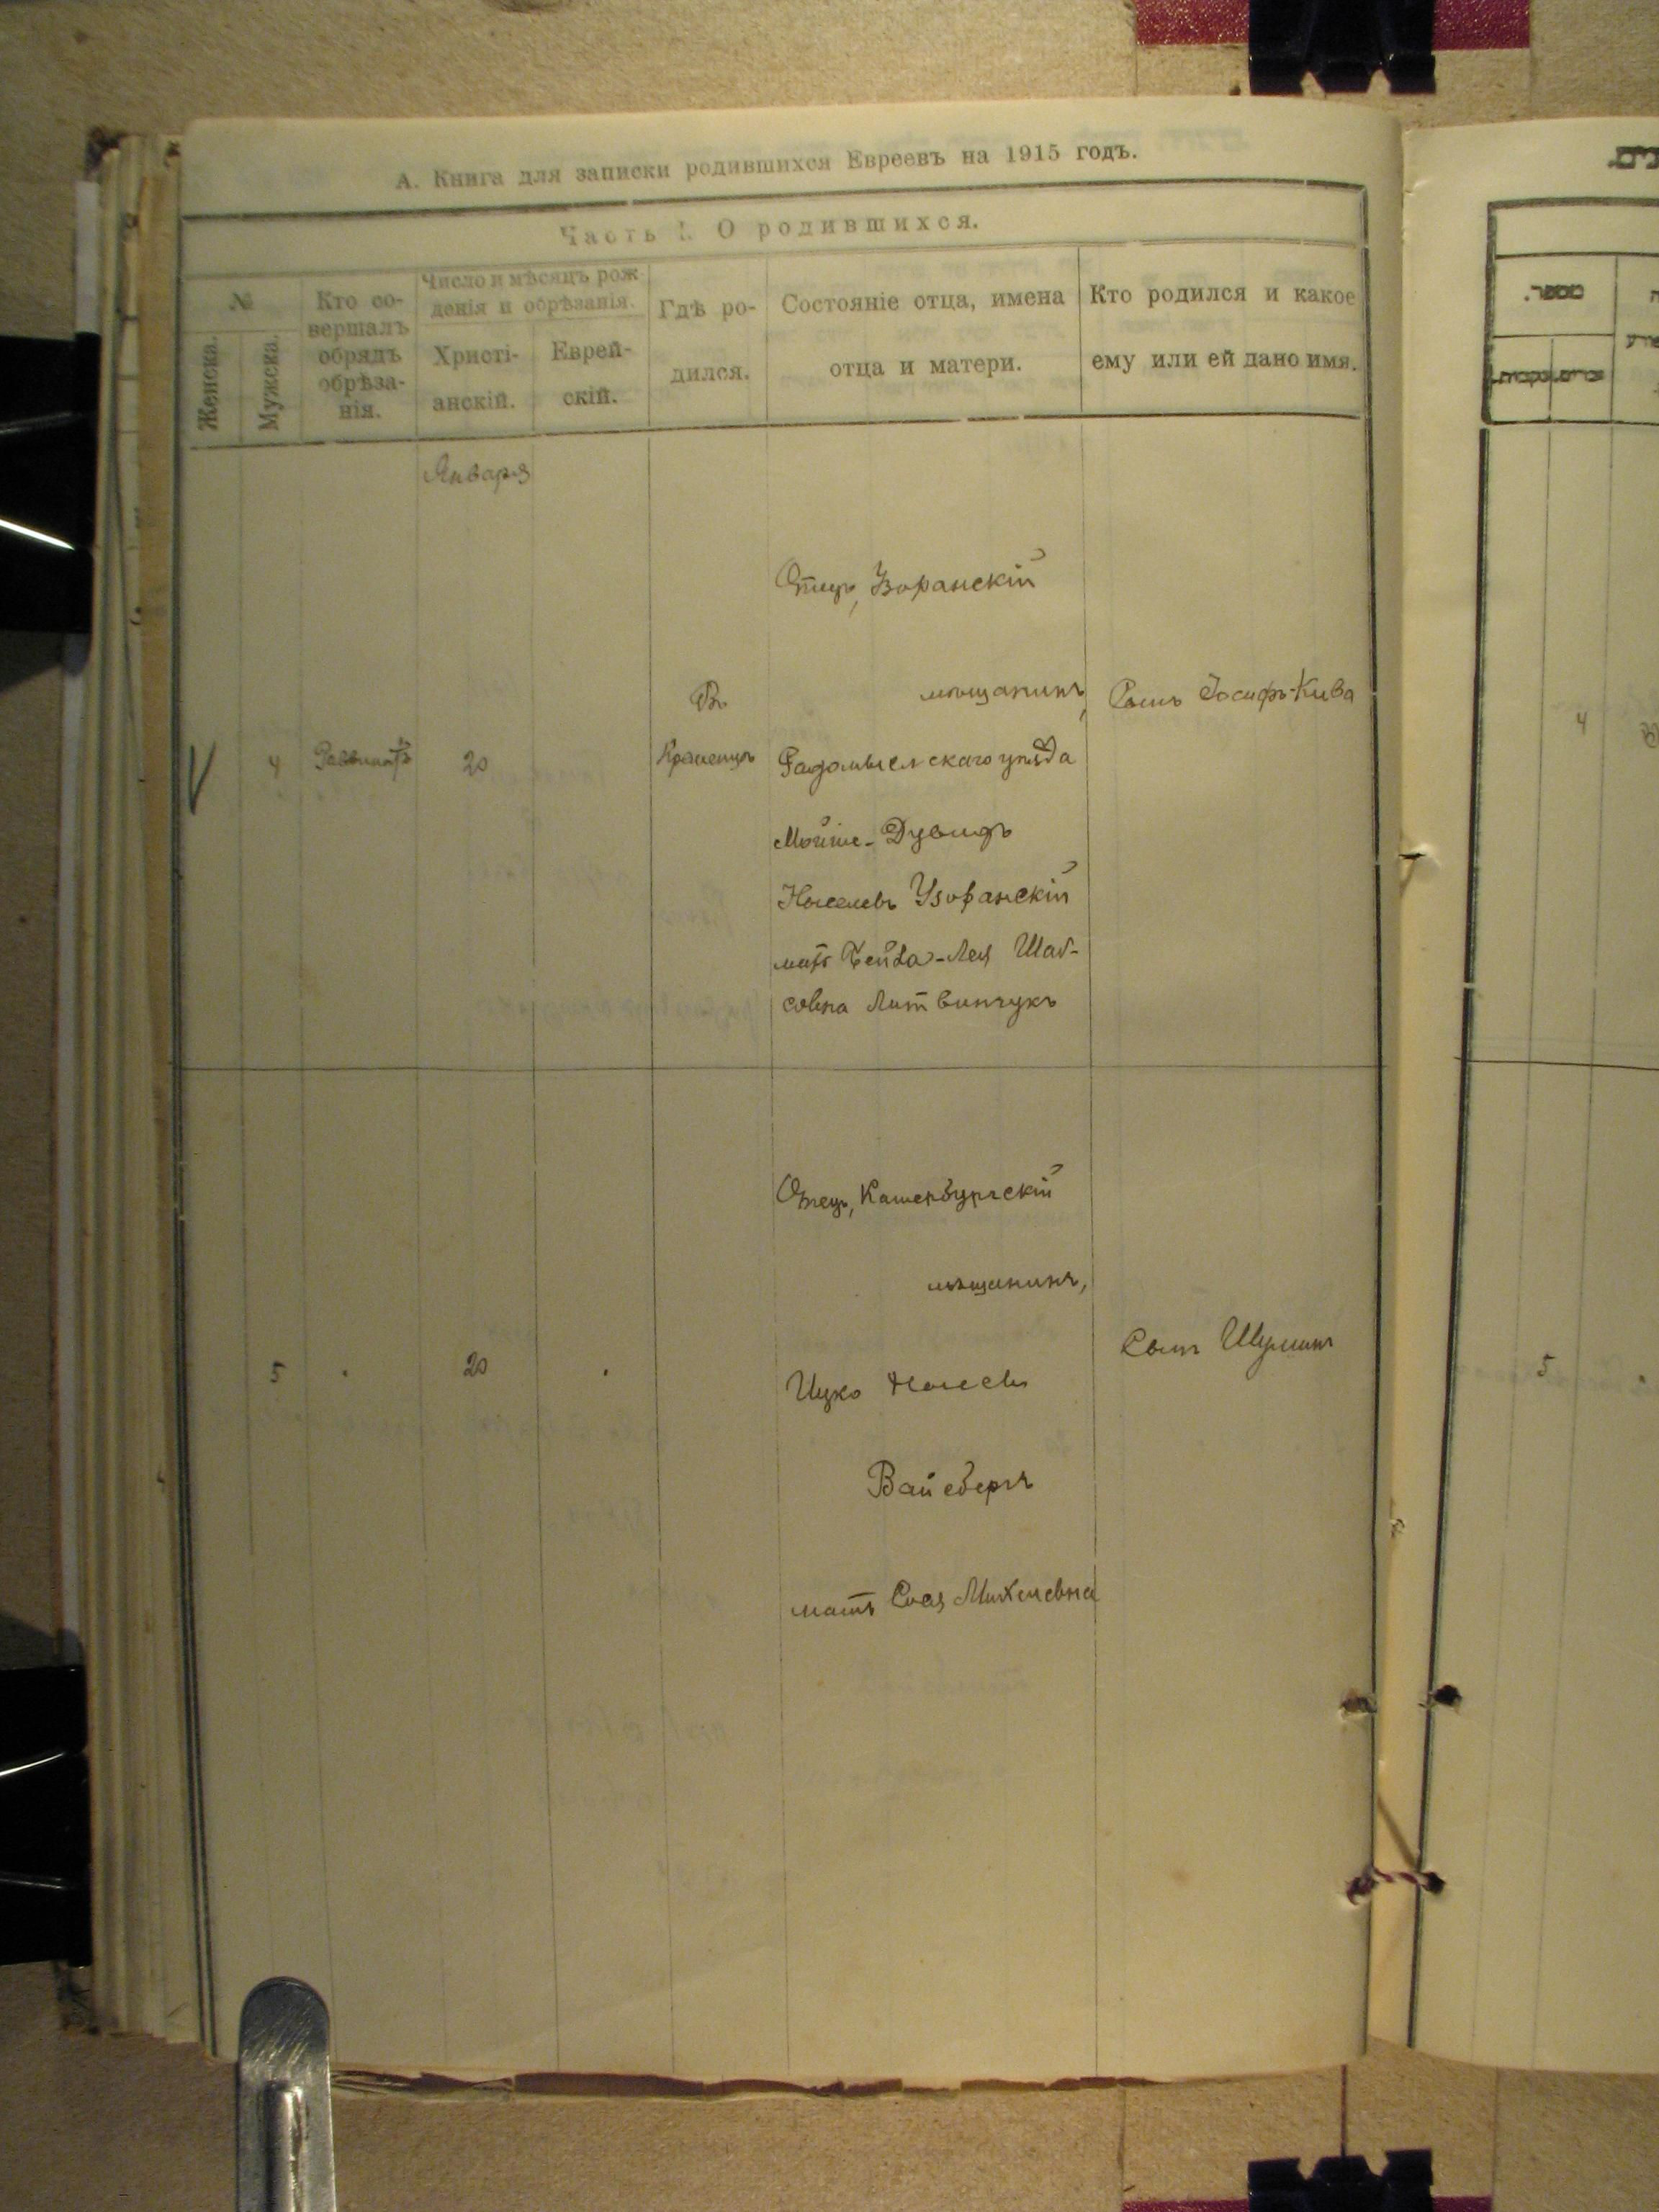 А. Книга для записки родившихся Евреевъ на 1915 годъ.
Часть I. О родившихся.
№
Женска.
Мужска.
Кто со-
вершалъ
обрядъ
обрѣза-
нія.
Число и мѣсяцъ рож-
денія и обрѣзанія.
Христі-
анскій.
Еврей-
скій.
Гдѣ ро-
дился.
Состояніе отца, имена
отца и матери.
Кто родился и какое
ему или ей дано имя.
Января
4
20
Въ
Отецъ,
мѣщанинъ,
Радомысльскаго уѣзда
Мойше-Дувидъ
Узоранскій
мать Бейла-Лея Шаб-
совна Литвинчукъ
Сынъ Іосифъ-Кива
5
20
Отецъ, Катербургскій
мѣщанинъ,
Ицко
Вайсбергъ
мать Сося Михелевна
Сынъ Шулимъ
מספר.
זכרים.
נקבות.
4
5